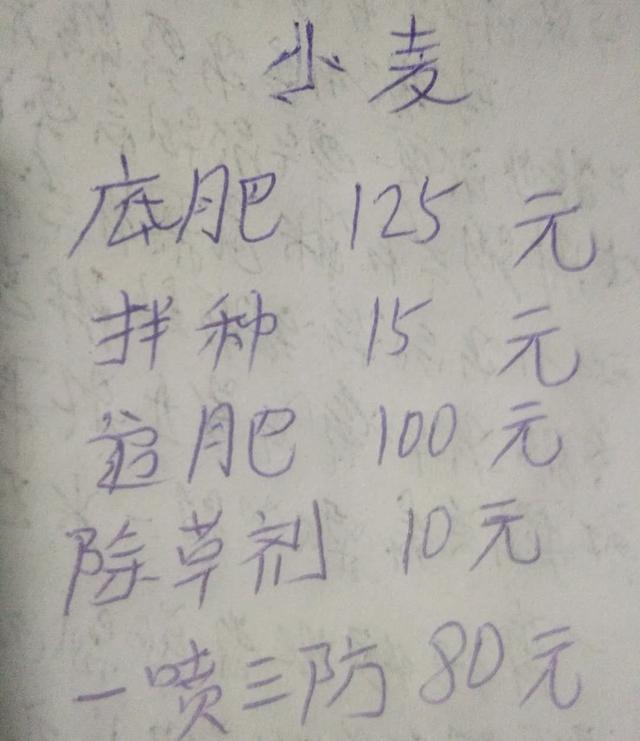 小麦
底肥 125 元
拌种 15 元
追肥 100 元
除草剂 10元
一喷三防 80元